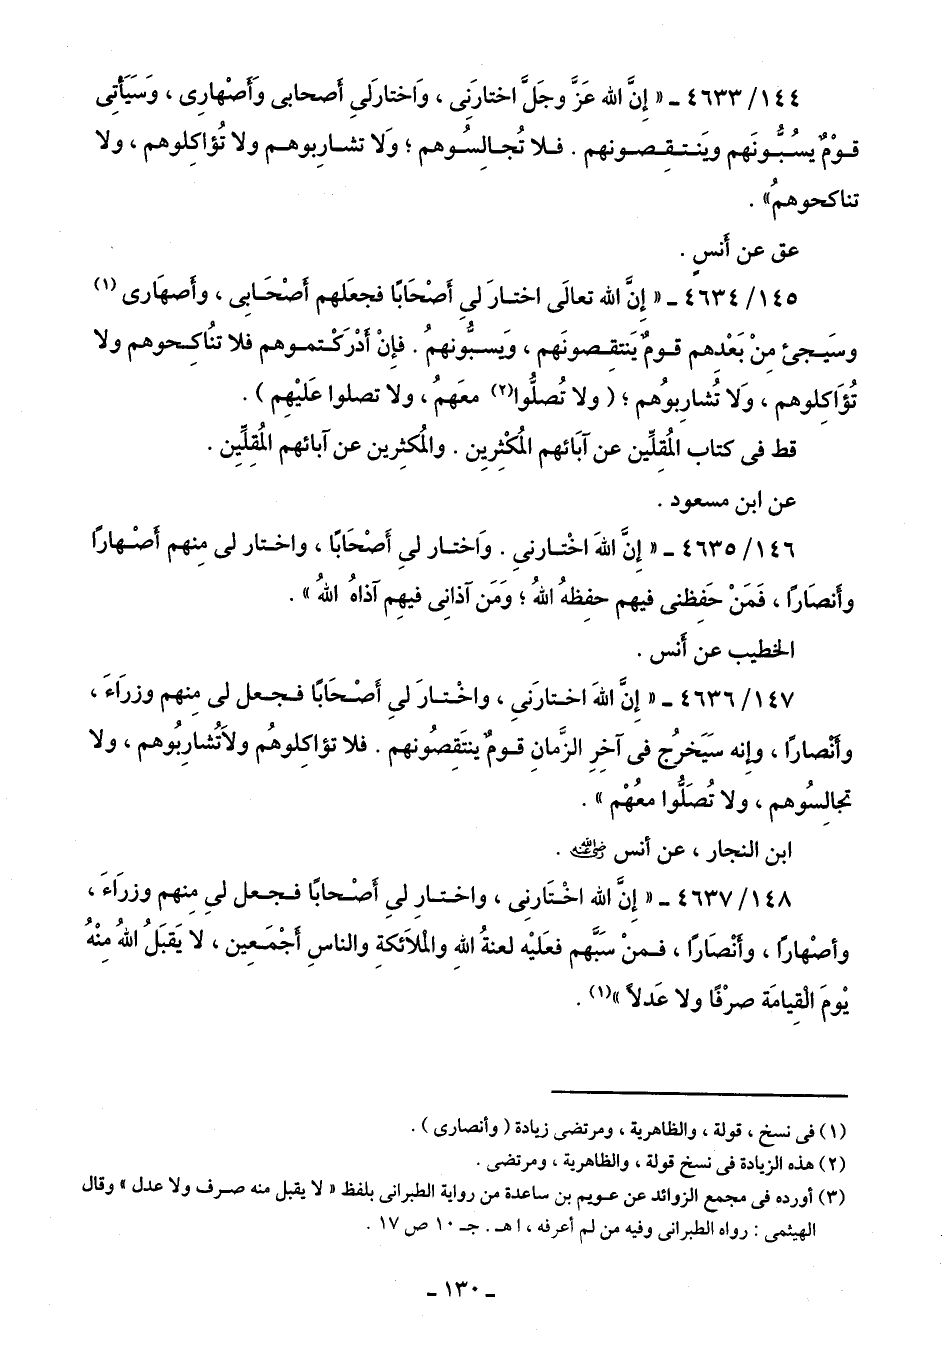 ١٤٤/ ٤٦٣٣ ـ « إِنَّ الله عَزَّ وجَلَّ اختارَنِى ، وَاختارَلِى أصحابى وأَصْهارِى ، وسَيَأْتِى
قومٌ يسُبُّونَهم ويَنتقِصونهم . فلا تُجالِسُوهم ؛ وَلا تشارِبوهم ولا تُؤاكلوهم ، ولا
تناكحوهمُ» .
عق عن أَنسٍ .
١٤٥/ ٤٦٣٤ ـ « إِنَّ الله تعالَى اختارَ لىِ أَصْحَابًا فجعَلهم أصْحَابى ، وأَصهَارى (١)
وسيَجئ مِنْ بَعْدِهم قومٌ يَنتقِصونَهم ، وَيسبُّونهمُ . فإِنْ أَدْرَكْتموهم فلا تنُاكحوهم ولا
تُؤَاكِلوهم ، وَلا تُشارِبوُهم ؛ ( ولا تُصلُّوا(٢) معَهمُ ، ولا تصلوا عَلَيْهِم ) .
قط فى كتاب المُقِلِّين عن آبَائهم المُكْثِرِين . والمُكثِرِين عن آبائهم المُقِلِّين .
عن ابن مسعود .
١٤٦/ ٤٦٣٥ ـ « إِنَّ اللهَ اخْتارنى . وَاختار لى أَصْحَابًا ، واختار لى مِنهم أَصْهارًا
وأَنصَارًا ، فَمَنْ حَفِظنى فيهم حفِظهُ اللهُ ؛ وَمَن آذانى فيهِم آذاهُ اللهُ » .
الخطيب عن أَنس .
١٤٧/ ٤٦٣٦ ـ « إِنَّ اللهَ اختارَنِى ، واخْتارَ لى أَصْحَابًا فجعل لى مِنهم وزرَاءَ ،
وأَنْصارًا ، وإنه سَيَخرُج فى آخرِ الزَّمان قومٌ ينتَقِصُونهم . فلا تؤاكلوهُم ولاَتُشارِبُوهم ، ولا
تجالِسُوهم ، ولا تُصَلُّوا معهُمْ » .
ابن النجار ، عن أنس رضي الله عنه .
١٤٨/ ٤٦٣٧ ـ « إِنَّ الله اخْتَارنِى ، واختار لى أَصْحابًا فجعل لىِ مِنهم وزرَاءَ ،
وأصْهارًا ، وأَنْصَارًا ، فمنْ سَبَّهم فعَلَيْه لعنةُ اللهِ والملَائكة والناسِ أَجْمَعين ، لا يَقبَلُ اللهُ مِنْهُ
يْومَ القِيامَة صرْفًا ولا عَدلاً »(١) .
(١) فى نسخ ، قولة ، والظاهرية ، ومرتضى زيادة ( وأنصارى ) .
(٢) هذه الزيادة فى نسخ قولة ، والظاهرية ، ومرتضى .
(٣) أورده فى مجمع الزوائد عن عويم بن ساعدة من رواية الطبرانى بلفظ « لا يقبل منه صرف ولا عدل » وقال
الهيثمى : رواه الطبرانى وفيه من لم أعرفه ، ا هـ . جـ ١٠ ص ١٧ .
ـ ١٣٠ ـ